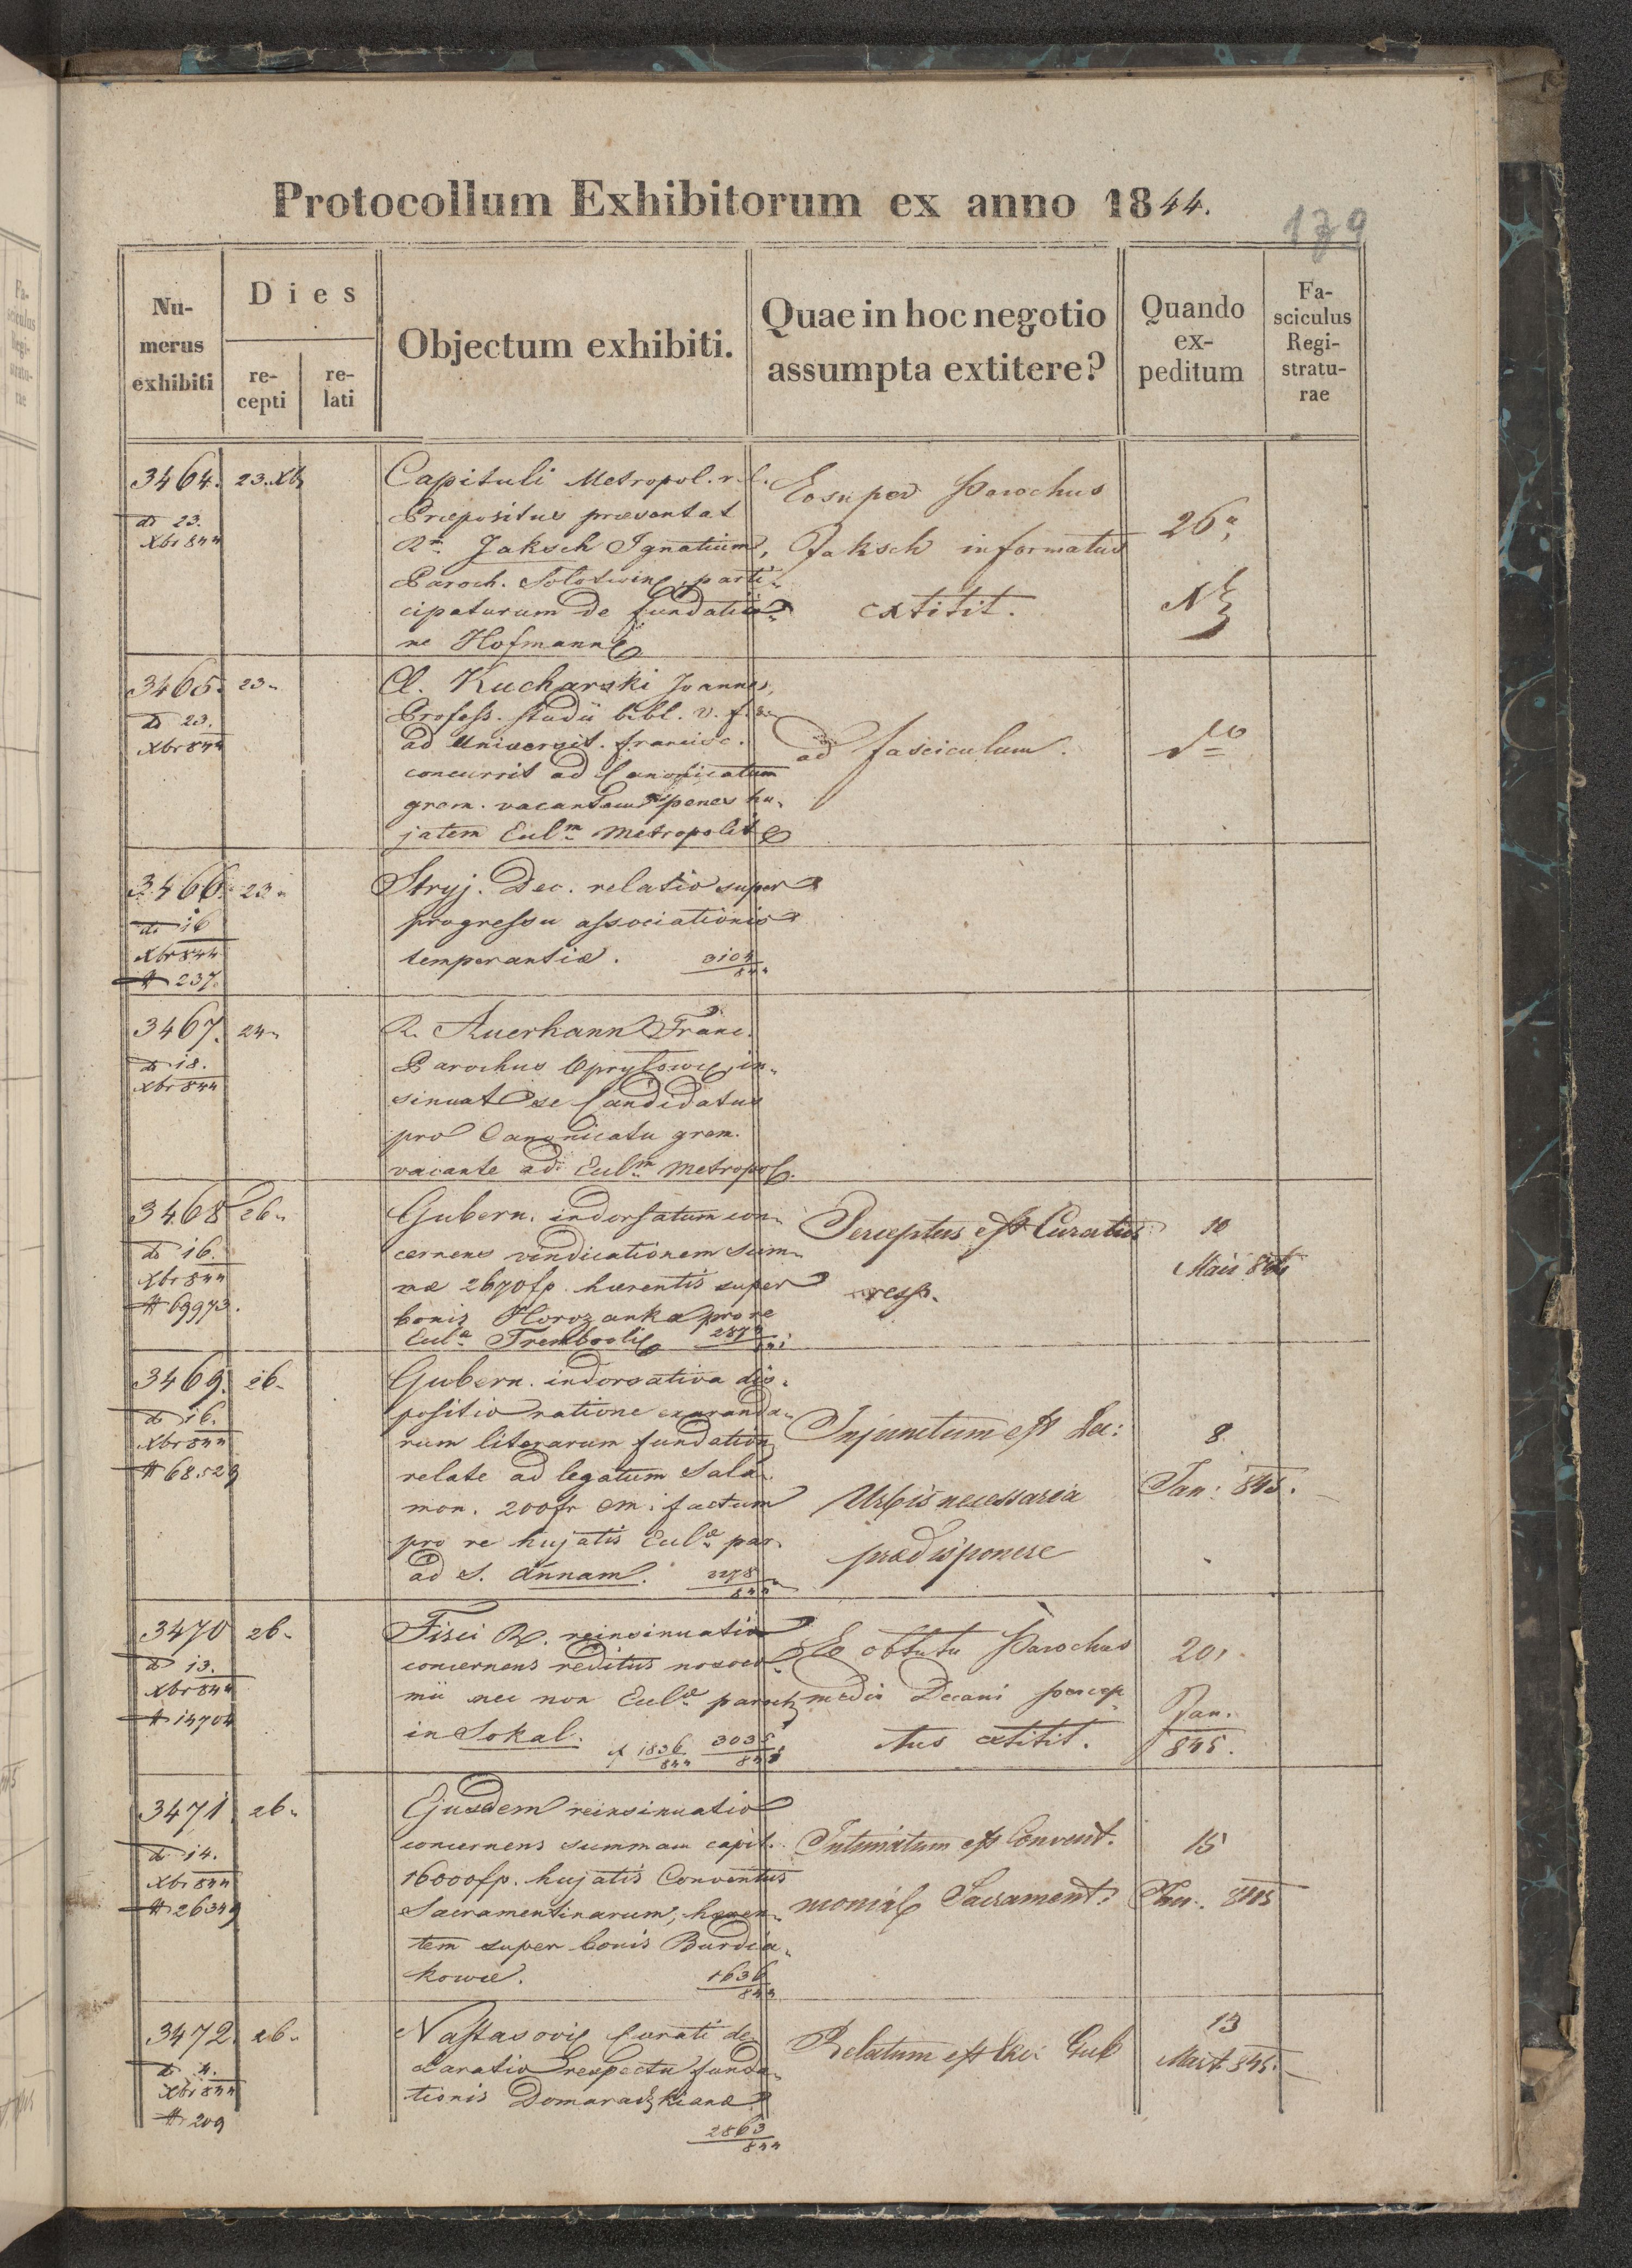 Protocollum Exhibitorum ex anno 1844.
139
Numerus exhibiti
Dies
recepti
relati
Objectum exhibiti.
Quae in hoc negotio assumpta extitere?
Quando expeditum
Fasciculus Registraturae
3464. 23. Xb
dto 23.
Xbr 844
Capituli Metropol. r. l.
Praepositus praesentat
Rm. Jaksch Ignatium,
Paroch. Solotwin, parti-
cipaturum de fundatio-
ne Hofmann
Eosuper Parochus
Jaksch informatus
extitit.
26
3465. 23
dto 23.
Xbr 844
Cl. Kucharski Joannes,
Profess. studii bibl. v. f.
ad Universit. francisc.
concurrit ad Canonicatum
grem. vacantem penes hu-
jatem Eclm Metropolit
ad fasciculum.
dto
3466. 23
dto 16
Xbr 844
# 237.
Stryj. Dec. relatio super
progressu associationis
temperantiae. 3104/844
3467. 24
dto 18.
Xbr 844
R. Auerhann Franc.
Parochus Opryłowc, in-
sinuat se Candidatus
pro Canonicatu grem.
vacante ad Eclm Metropol.
3468 26
dto 16.
Xbr 844
# 69973.
Gubern. indorsatum con-
cernens vindicationem Sum-
mae 2670 fp. haerentis super
bonis Horozanka pro re
Ecla Trembowl
Perceptus est Curatus
resp.
10
Maii 845
3469. 26
dto 16.
Xbr 844
# 68.529
Gubern. indorsativa dis-
positio ratione exaranda-
rum literarum fundation
relate ad legatum Sala-
mon. 200 fr Cm: factum
pro re hujatis Eclae par.
ad S. Annam. 2278/844
Injunctum est Dec:
Urbis necessaria
praedisponere
8.
Jan: 845.
3470 26
dto 13.
Xbr 844
# 14704
Fisci R. reinsinuatio
concernens reditus nosoco-
mii nec non Eclae paroch
in Sokal.
1836/844 3035/844
Eo obtutu Parochus
medio Decani percep-
tus extitit.
20
Jan.
845.
3471. 26
dto 14.
Xbr 844
# 26349
Ejusdem reinsinuatio
concernens summam capit.
16000 fp. hujatis Conventus
Sacramentinarum, haeren-
tem super bonis Burdia-
kowce. 1636/844
Intimatum est Convent.
monial Sacrament.
15
Jan. 845
3472. 26
dto 4.
Xbr 844
# 209
Nastasovi Curati de-
claratio respectu funda-
tionis Domaradzkianae
2863/844
Relatum est Exc: Gub
13
Mart 845.